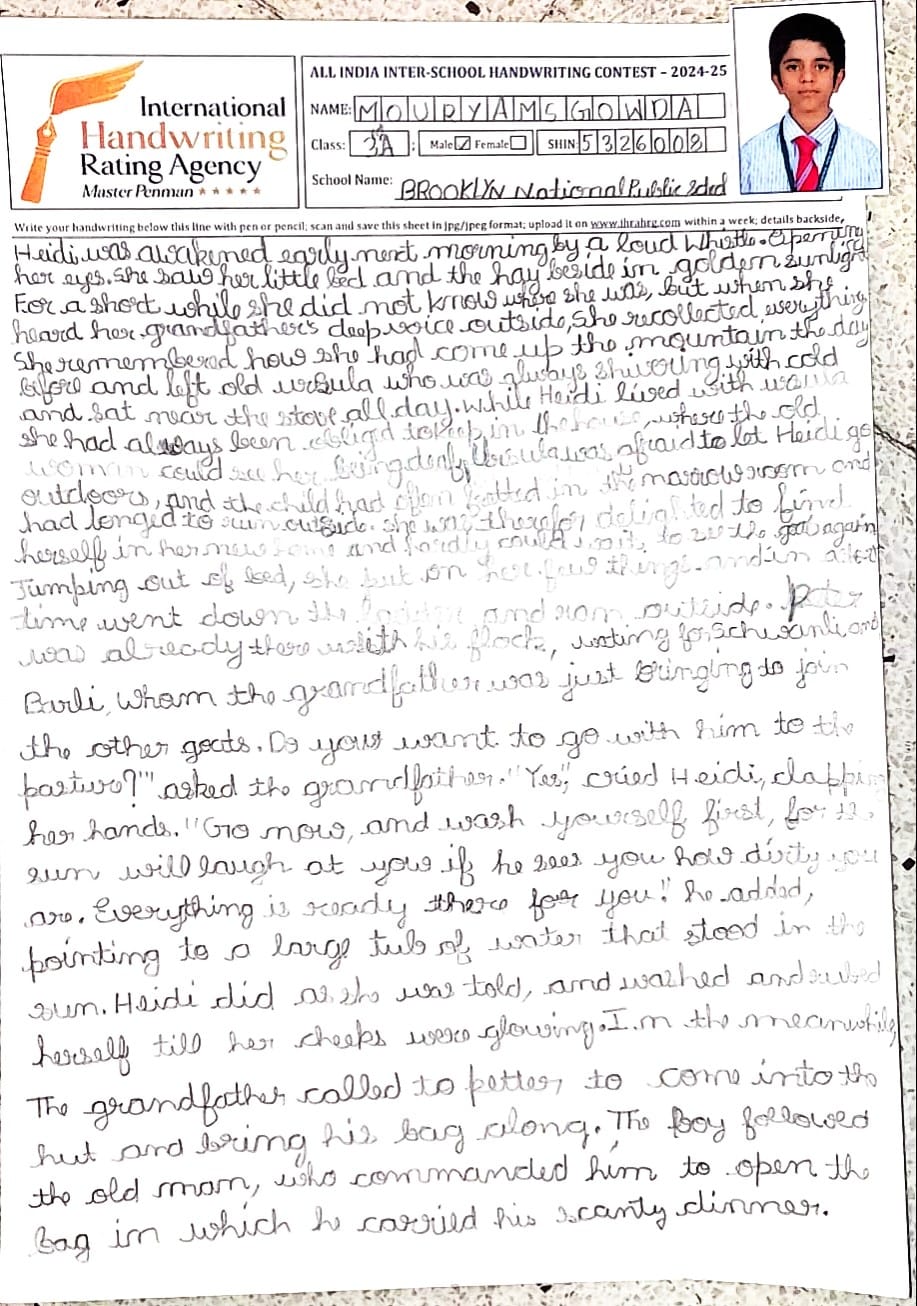 ALL INDIA INTER-SCHOOL HANDWRITING CONTEST – 2024-25
International
Handwriting
Rating Agency
Master Penman ★★★★★
NAME: MOURYAMSGOWDA
Class: 3A : Male ☑ Female ☐ SHIN: 5326008
School Name: BROOKLYN National Public
Write your handwriting below this line with pen or pencil; scan and save this sheet in jpg/jpeg format; upload it on www.ihrahrg.com within a week; details backside,
Heidi was awakened early next morning by a loud Whistle. Opening
her eyes. She saw her little bed and the hay beside in golden sunlight
For a short while she did not know where she was, but when she
heard her grandfather's deep voice outside, she recollected everything
She remembered how she had come up the mountain the day
before and left old ursula who was always shivering with cold
and sat near the stove all day. While Heidi lived with
she had always been to keep in the house, where the old
woman could see her. Being deaf, Ursula was afraid to let Heidi go
outdoors, and the child had often in the narrow room and
had longed to run outside. She was therefor delighted to find
herself in her new home and hardly could wait to see the goat again
Jumping out of bed, she but on her few things. and in
time went down the and ran outside. Peter
was already there with his flock, wating for Schwanli and
Barli, whom the grandfather was just bringing to join
the other goats. Do your want to go with him to the
pasture?" asked the grandfather. "Yes", cried Heidi, clapping
her hands. "Go now, and wash yourself first, for the
sun will laugh at you if he sees you how dirty you
are. Everything is ready there for you." he added,
pointing to a large tub of water that stood in the
sun. Heidi did as she was told, and washed and rubbed
herself till her cheeks were glowing. In the meanwhile,
The grandfather called to petter, to come into the
hut and bring his bag along. The Boy followed
the old man, who commanded him to open the
Bag in which he carried his scanty dinner.